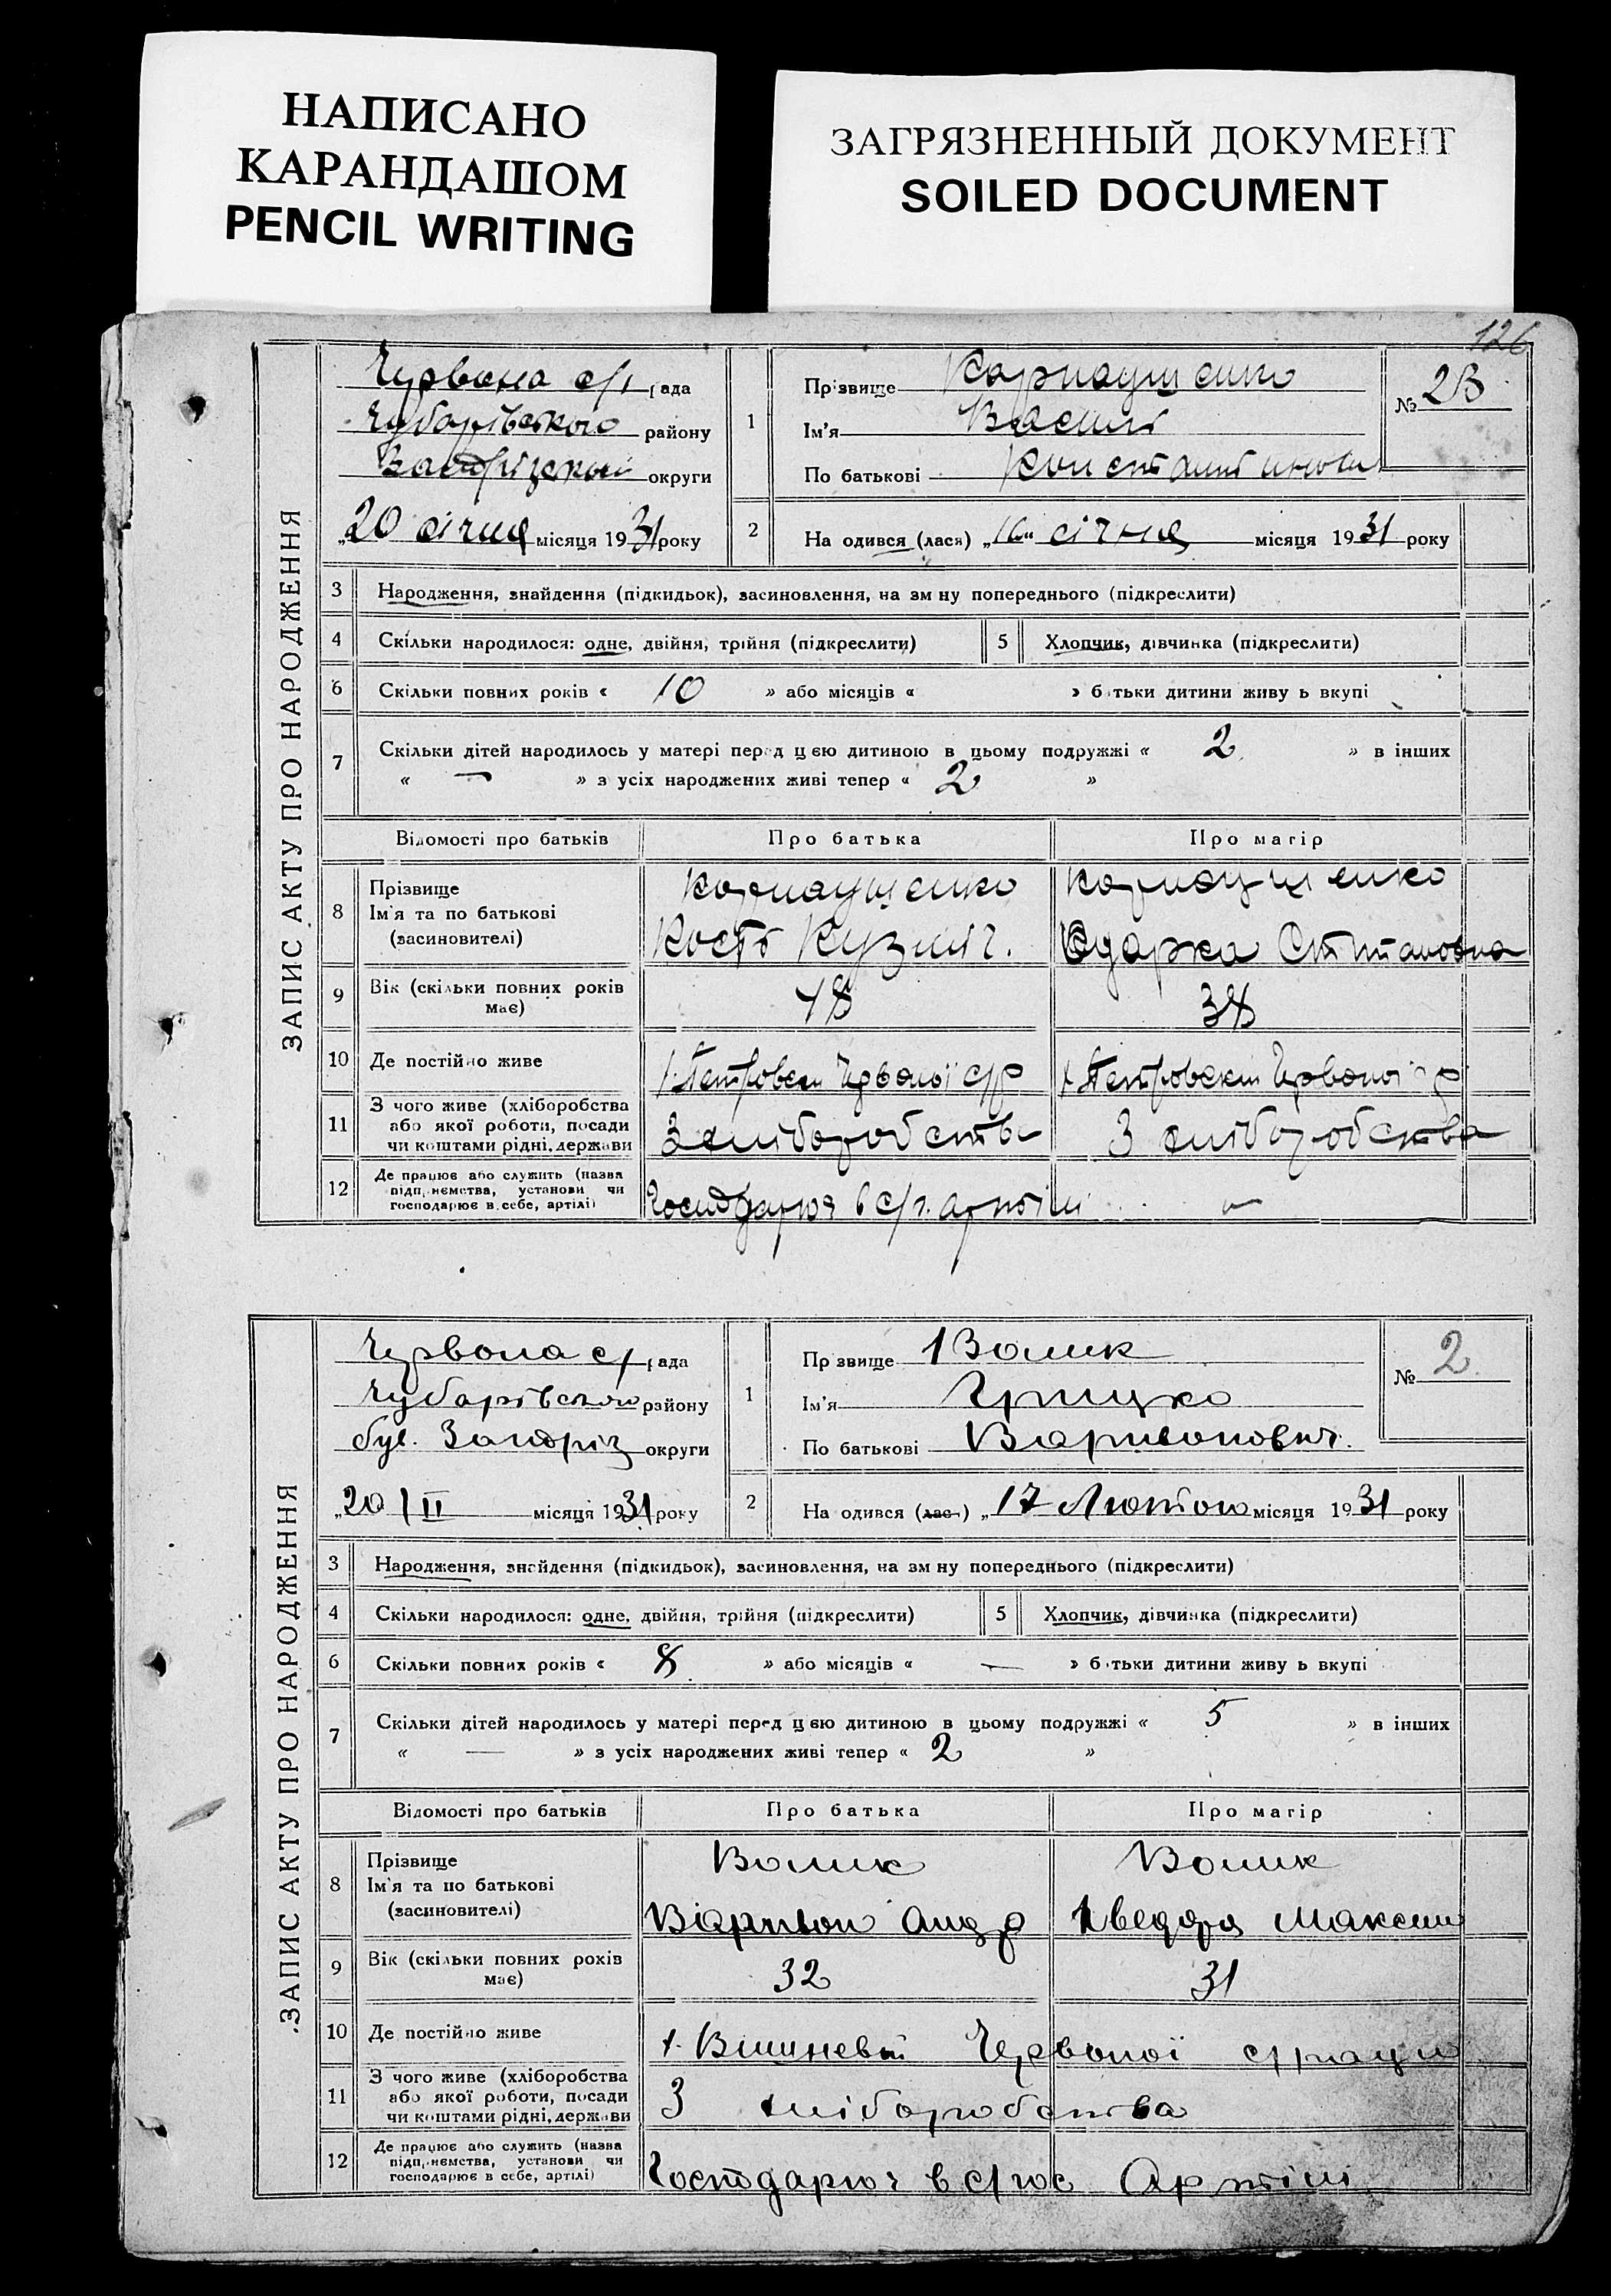 НАПИСАНО
КАРАНДАШОМ
PENCIL WRITING
ЗАГРЯЗНЕННЫЙ ДОКУМЕНТ
SOILED DOCUMENT
126
ЗАПИС АКТУ ПРО НАРОДЖЕННЯ
Червона с/г рада
Чубарівського району
округи
„20 січня місяця 1931 року
1
Прізвище Карнаушенко
Ім'я Василь
По батькові Константинович
№ 2В
2
На одився (лася) „16“ січня місяця 1931 року
3
Народження, знайдення (підкидьок), засиновлення, на зм ну попереднього (підкреслити)
4
Скільки народилося: одне, двійня, трійня (підкреслити)
5
Хлопчик, дівчинка (підкреслити)
6
Скільки повних років « 10 » або місяців « » б тьки дитини живу ь вкупі
7
Скільки дітей народилось у матері перед цею дитиною в цьому подружжі « 2 » в інших
« — » з усіх народжених живі тепер « 2 »
Відомості про батьків
Про батька
Про матір
8
Прізвище
Ім'я та по батькові
(засиновителі)
Карнаушенко
Кость Кузмич.
Карнаушенко
Одарка Степановна
9
Вік (скільки повних років
має)
48
38
10
Де постійно живе
х. Петровськ Червоної с/р
х Петровськ Червоної с р
11
З чого живе (хліборобства
або якої роботи, посади
чи коштами рідні, держави
З хліборобства
З хліборобства
12
Де працює або служить (назва
підприємства, установи чи
господарює в себе, артілі)
Господарюя в с/г. артілі
—
ЗАПИС АКТУ ПРО НАРОДЖЕННЯ
Червона с/ рада
Чубарівського району
був. Запоріз округи
„20/II місяця 1931 року
1
Пр звище Волик
Ім'я Грицко
По батькові Варивонович.
№ 2
2
На одився (лас ) „17 Лютого місяця 1931 року
3
Народження, знайдення (підкидьок), засиновлення, на зм ну попереднього (підкреслити)
4
Скільки народилося: одне, двійня, трійня (підкреслити)
5
Хлопчик, дівчинка (підкреслити)
6
Скільки повних років « 8 » або місяців « — » б тьки дитини живу ь вкупі
7
Скільки дітей народилось у матері перед цею дитиною в цьому подружжі « 5 » в інших
« — » з усіх народжених живі тепер « 2 »
Відомості про батьків
Про батька
Про матір
8
Прізвище
Ім'я та по батькові
(засиновителі)
Волик
Варивон Андр
Волик
Максим
9
Вік (скільки повних років
має)
32
31
10
Де постійно живе
х. Вишневий Червоної с/ради
11
З чого живе (хліборобства
або якої роботи, посади
чи коштами рідні, держави
З хліборобства
12
Де працює або служить (назва
підприємства, установи чи
господарює в себе, артілі)
Господарює в с/гос Артілі